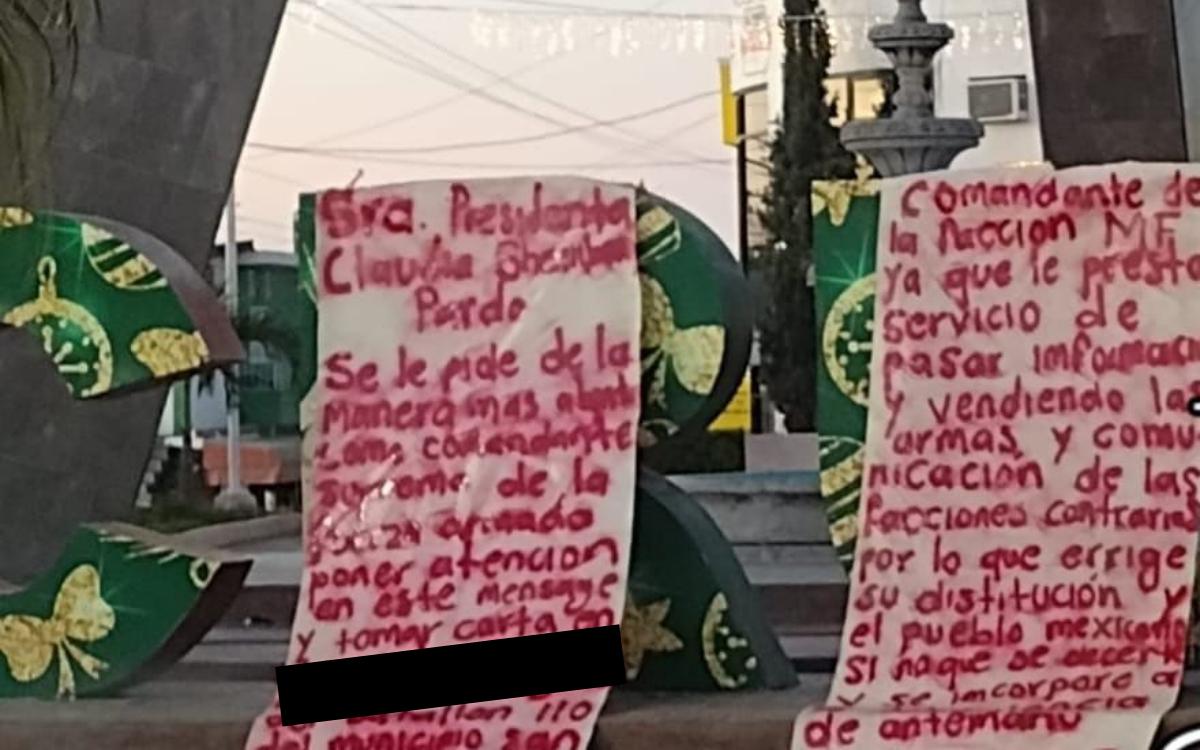 Sra. Presidenta
Claudia Sheinbaum
Pardo
Se le pide de la
manera mas
como comandante
suprema de la
fuerza armada
poner atencion
en este mensage
y tomar carta en
110
del municipio san
Comandante de
la faccion MF
ya que le presta
servicio de
pasar informac
y vendiendo las
armas, y comu
nicacion de las
facciones contrarias
por lo que errige
su distitución y
el pueblo mexicano
si haque se
y se incorpore a
de antemano